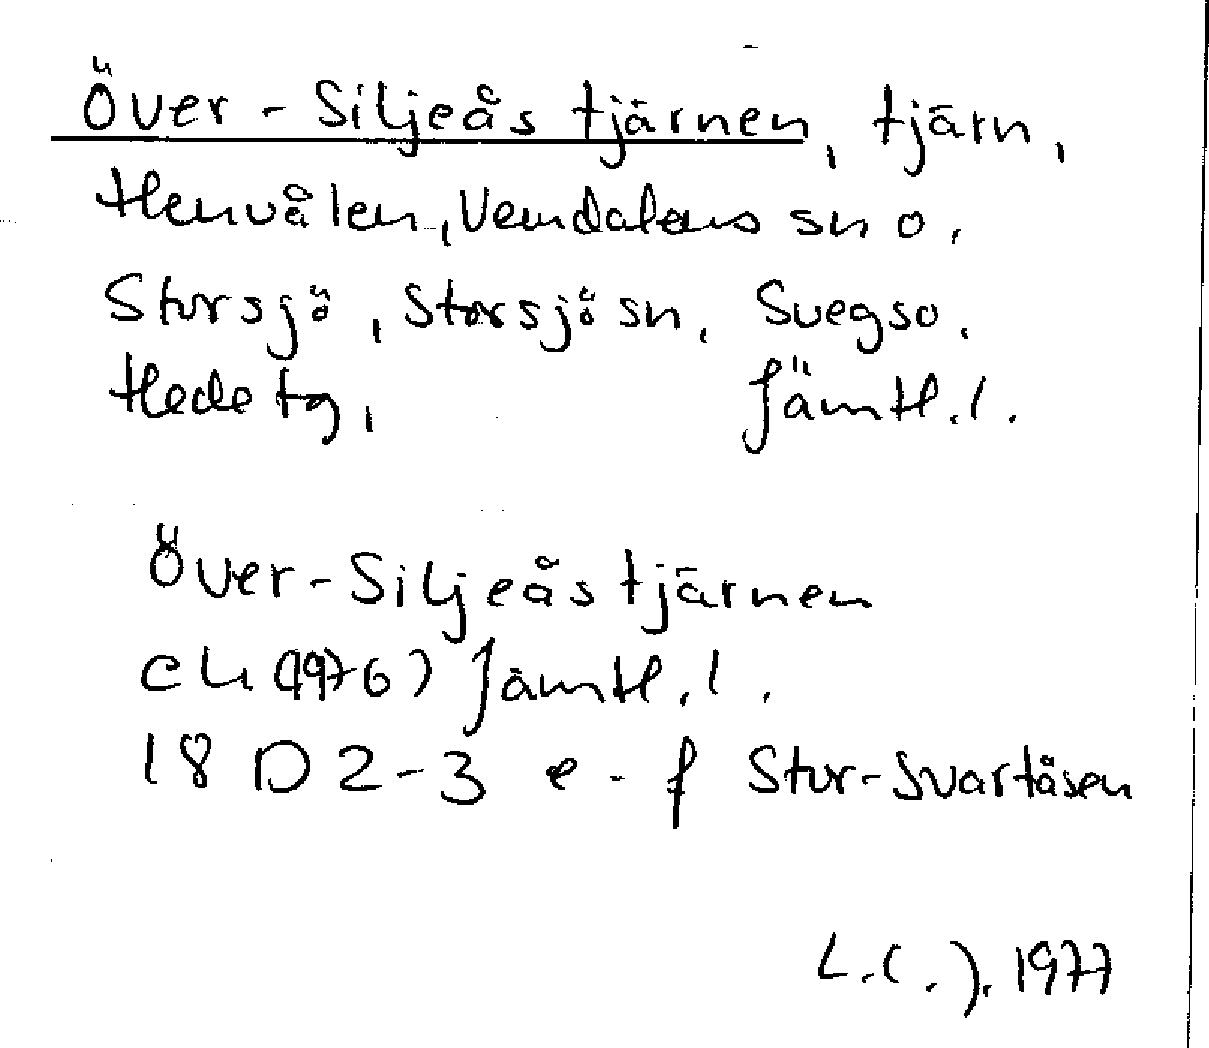 Över-Siljeåstjärnen, tjärn,
Henvålen, Vemdalens sn o.
Storsjö, Storsjö sn, Svegso.
Hede tg, Jämtl.l.
Över-Siljeåstjärnen
ek (1976) Jämtl.l.
18 D 2-3 e-f Stor-Svartåsen
L.C.J. 1977